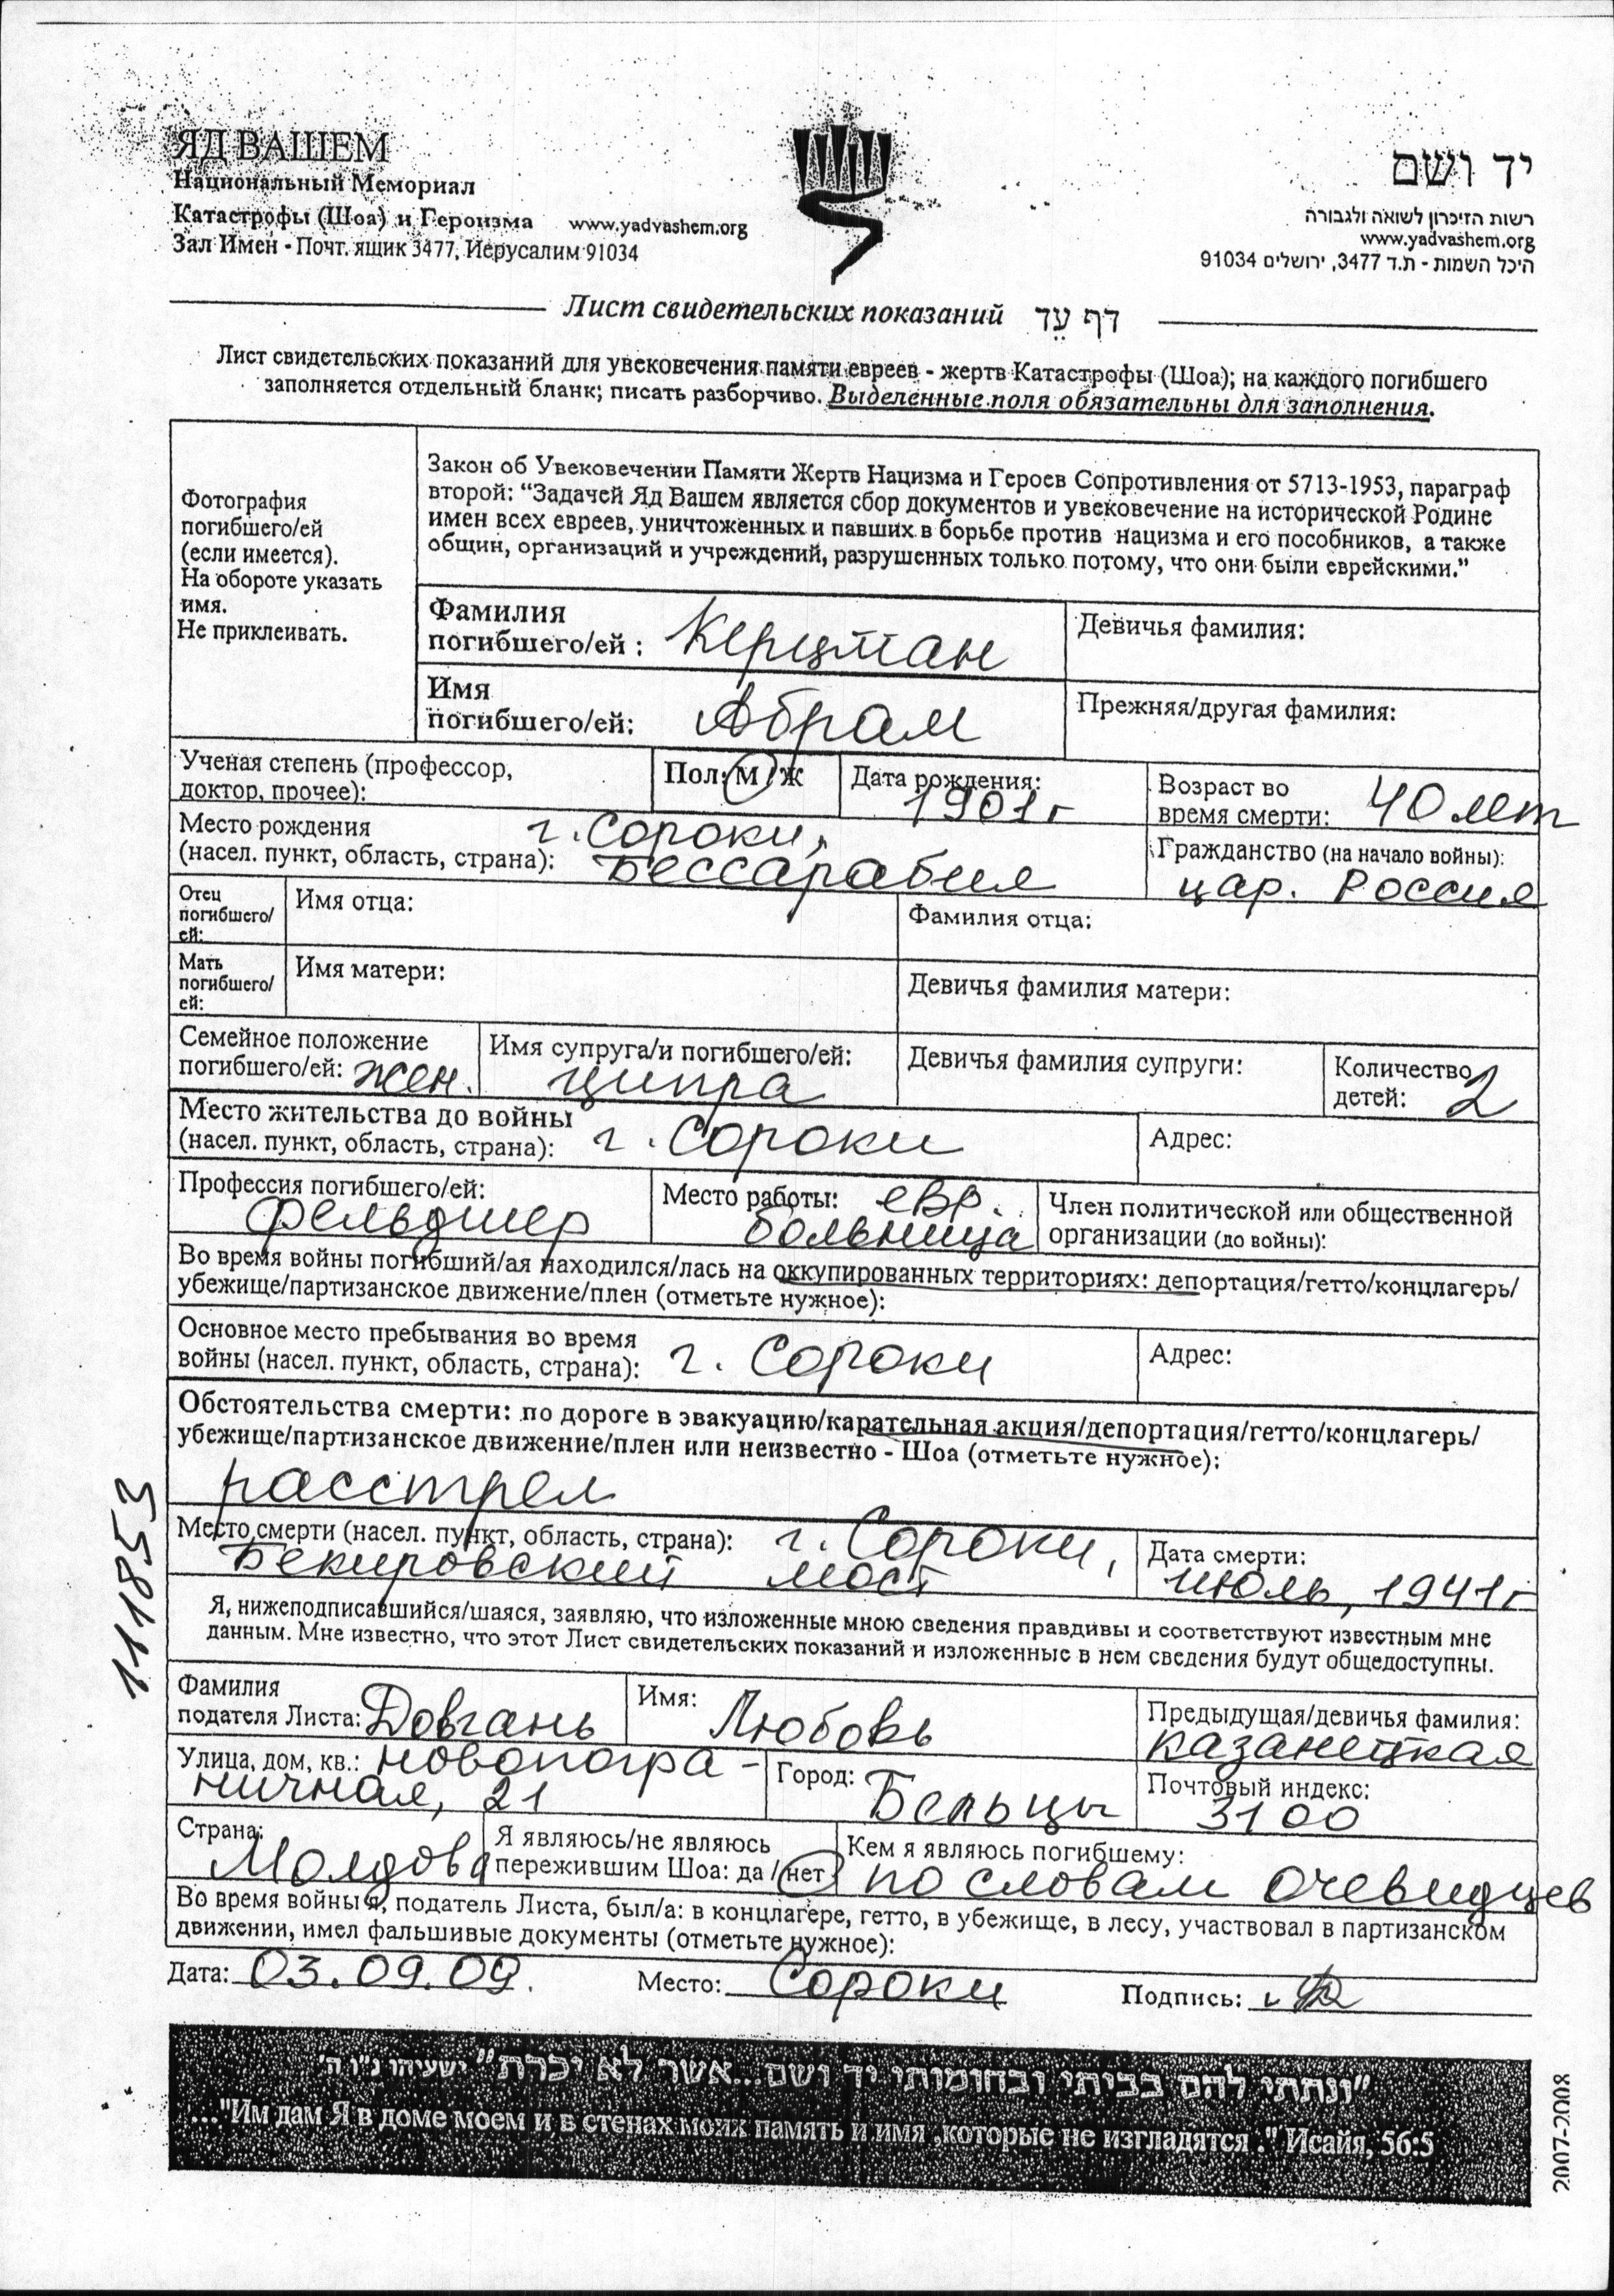 ЯД ВАШЕМ
Национальный Мемориал
Катастрофы (Шоа) и Героизма www.yadvashem.org
Зал Имен - Почт. ящик 3477, Иерусалим 91034
יד ושם
רשות הזיכרון לשואה ולגבורה
www.yadvashem.org
היכל השמות - ת.ד 3477, ירושלים 91034
Лист свидетельских показаний דף עֵד
Лист свидетельских показаний для увековечения памяти евреев - жертв Катастрофы (Шоа); на каждого погибшего
заполняется отдельный бланк; писать разборчиво. Выделенные поля обязательны для заполнения.
Фотография
погибшего/ей
(если имеется).
На обороте указать
имя.
Не приклеивать.
Закон об Увековечении Памяти Жертв Нацизма и Героев Сопротивления от 5713-1953, параграф
второй: “Задачей Яд Вашем является сбор документов и увековечение на исторической Родине
имен всех евреев, уничтоженных и павших в борьбе против нацизма и его пособников, а также
общин, организаций и учреждений, разрушенных только потому, что они были еврейскими.”
Фамилия
погибшего/ей : Керцман
Девичья фамилия:
Имя
погибшего/ей: Абрам
Прежняя/другая фамилия:
Ученая степень (профессор,
доктор, прочее):
Пол: М / Ж
Дата рождения:
1901г
Возраст во
время смерти: 40 лет
Место рождения г. Сороки,
(насел. пункт, область, страна): Бессарабия
Гражданство (на начало войны):
цар. Россия
Отец
погибшего/
ей:
Имя отца:
Фамилия отца:
Мать
погибшего/
ей:
Имя матери:
Девичья фамилия матери:
Семейное положение
погибшего/ей: жен.
Имя супруга/и погибшего/ей:
Ципра
Девичья фамилия супруги:
Количество
детей: 2
Место жительства до войны
(насел. пункт, область, страна): г. Сороки
Адрес:
Профессия погибшего/ей:
фельдшер
Место работы: евр.
больница
Член политической или общественной
организации (до войны):
Во время войны погибший/ая находился/лась на оккупированных территориях: депортация/гетто/концлагерь/
убежище/партизанское движение/плен (отметьте нужное):
Основное место пребывания во время
войны (насел. пункт, область, страна): г. Сороки
Адрес:
Обстоятельства смерти: по дороге в эвакуацию/карательная акция/депортация/гетто/концлагерь/
убежище/партизанское движение/плен или неизвестно - Шоа (отметьте нужное):
расстрел
Место смерти (насел. пункт, область, страна): г. Сороки,
Бекировский мост
Дата смерти:
июль, 1941г
Я, нижеподписавшийся/шаяся, заявляю, что изложенные мною сведения правдивы и соответствуют известным мне
данным. Мне известно, что этот Лист свидетельских показаний и изложенные в нем сведения будут общедоступны.
Фамилия
подателя Листа: Довгань
Имя:
Любовь
Предыдущая/девичья фамилия:
Казанецкая
Улица, дом, кв.: Новопогра-
ничная, 21
Город:
Бельцы
Почтовый индекс:
3100
Страна:
Молдова
Я являюсь/не являюсь
пережившим Шоа: да / нет
Кем я являюсь погибшему:
по словам очевидцев
Во время войны я, податель Листа, был/а: в концлагере, гетто, в убежище, в лесу, участвовал в партизанском
движении, имел фальшивые документы (отметьте нужное):
Дата: 03.09.09. Место: Сороки Подпись:
"ונתתי להם בביתי ובחומותי יד ושם...אשר לא יכרת" ישעיהו נ"ו ה'
..."Им дам Я в доме моем и в стенах моих память и имя ,которые не изгладятся ." Исайя, 56:5
111853
2007-2008